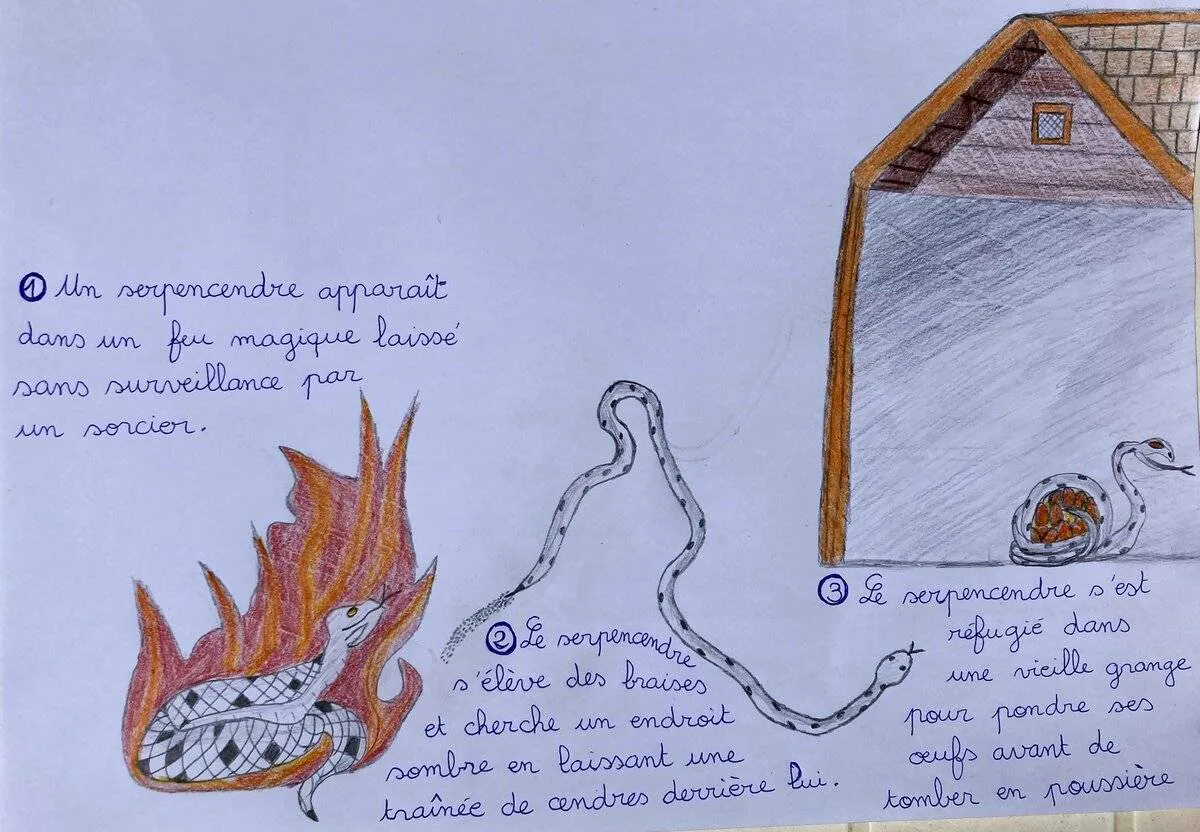 ① Un serpencendre apparaît
dans un feu magique laissé
sans surveillance par
un sorcier.
② Le serpencendre
s'élève des braises
et cherche un endroit
sombre en laissant une
traînée de cendres derrière lui.
③ Le serpencendre s'est
réfugié dans
une vieille grange
pour pondre ses
œufs avant de
tomber en poussière